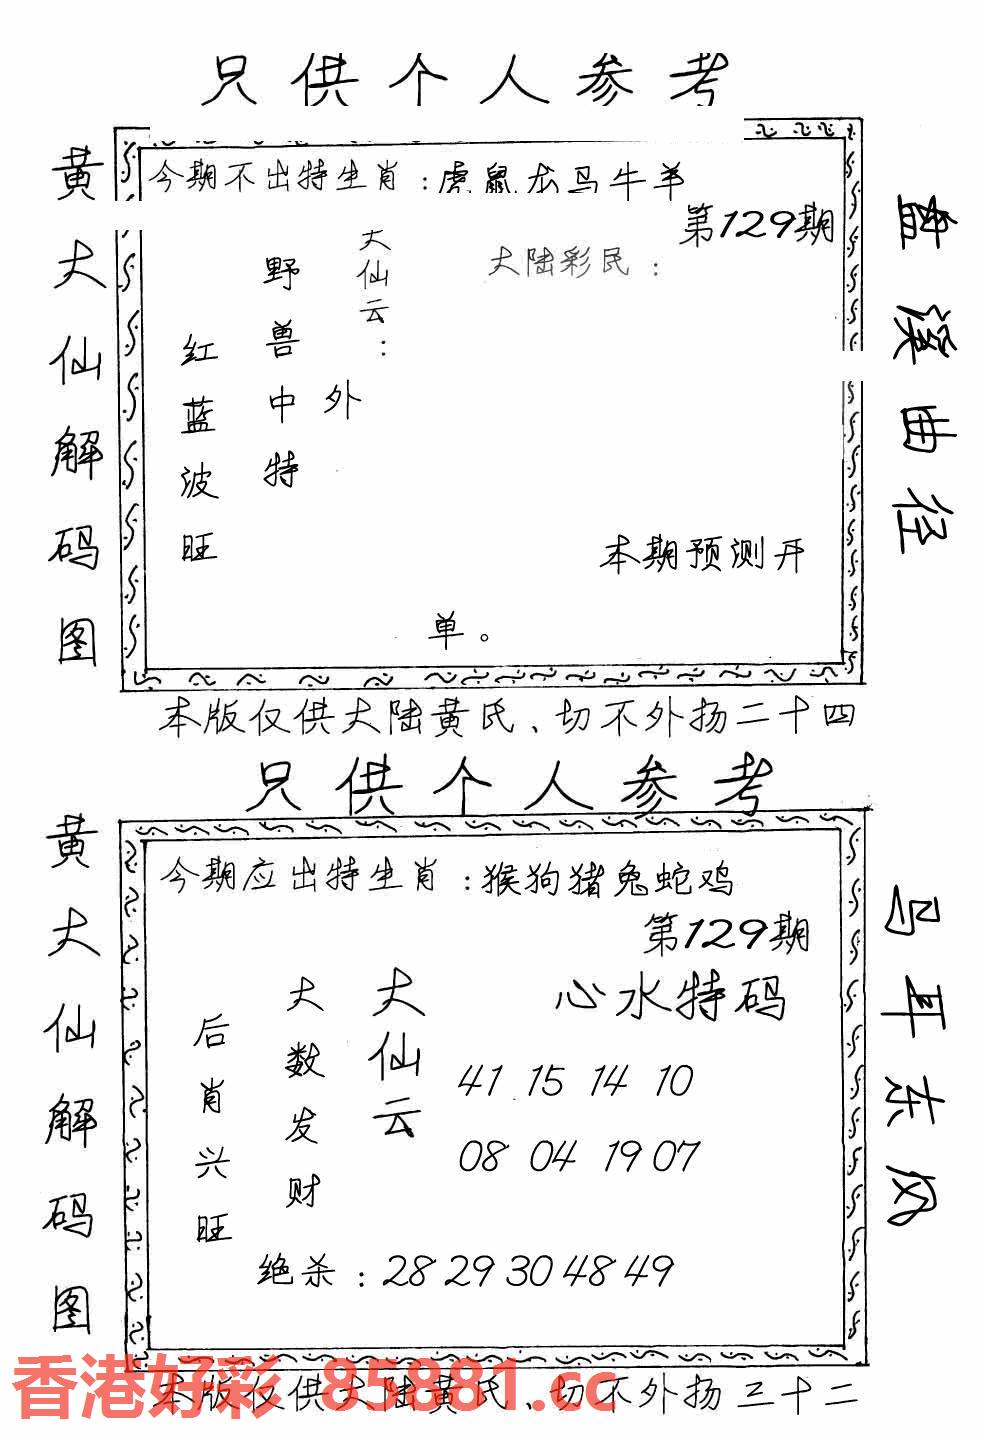 只供个人参考
黄大仙解码图
今期不出特生肖：虎鼠龙马牛羊
第129期
大仙云：
大陆彩民：
野兽中特
外
红蓝波旺
本期预测开
单。
盘溪曲径
本版仅供大陆黄氏、切不外扬二十四
只供个人参考
黄大仙解码图
今期应出特生肖：猴狗猪兔蛇鸡
第129期
心水特码
大仙云
大数发财
后肖兴旺
41 15 14 10
08 04 19 07
绝杀：28 29 30 48 49
马耳东风
香港好彩 85881.cc
本版仅供大陆黄氏、切不外扬三十二